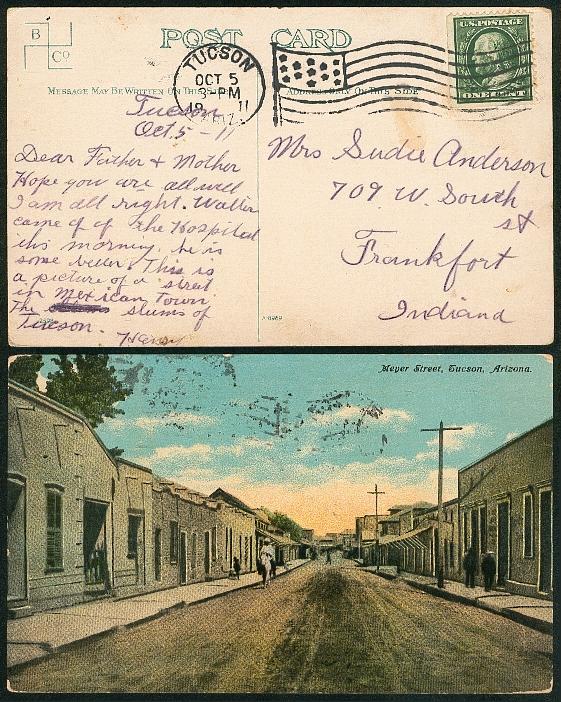 B
Co
POST CARD
MESSAGE MAY BE WRITTEN ON THIS SIDE
ADDRESS ONLY ON THIS SIDE
TUCSON
OCT 5
3-PM
19 11
ARIZ.
U.S. POSTAGE
ONE CENT
Tucson
Oct 5 - 11
Dear Father + Mother
Hope you are all well
I am all right. Walter
came of of the Hospital
this morning. he is
some better. This is
a picture of a street
in Mexican Town
The slums of
Tucson.
Mrs Sudie Anderson
709 W. South
st
Frankfort
Indiana
A-8969
Meyer Street, Tucson, Arizona.